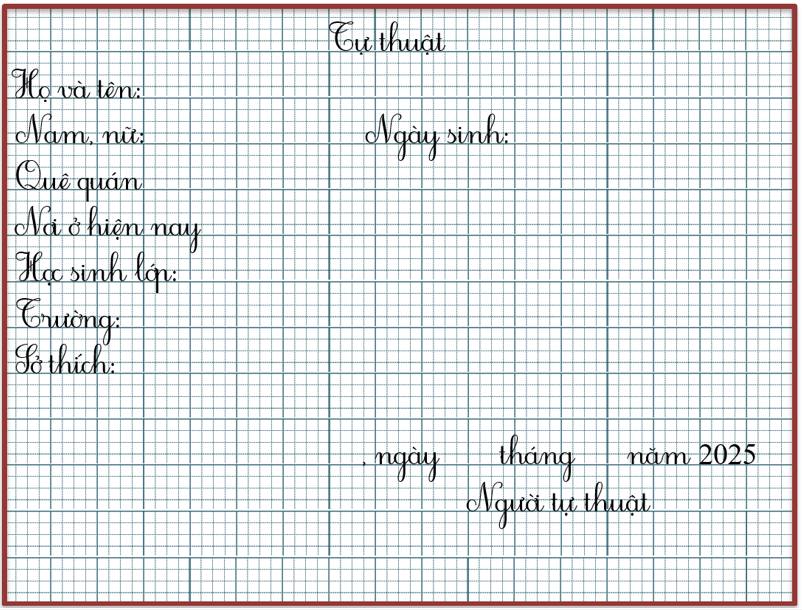 Tự thuật
Họ và tên:
Nam, nữ: Ngày sinh:
Quê quán
Nơi ở hiện nay
Học sinh lớp:
Trường:
Sở thích:
, ngày tháng năm 2025
Người tự thuật